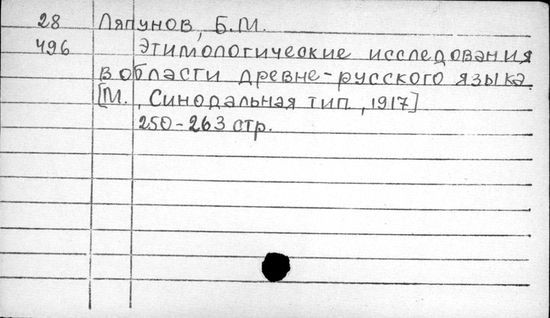 28 Ляпунов, Б.М.
496 Этимологические исследования
в области древне-русского языка.
[М., Синодальная тип, 1917]
250-263 стр.